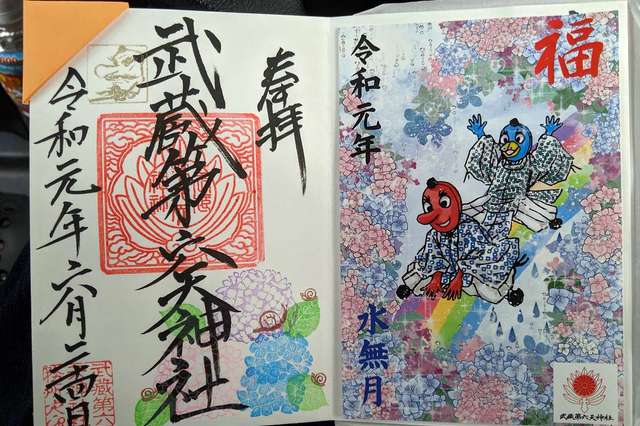 福
令和元年
水無月
武蔵第六天神社
奉拝
武蔵第六天神社
令和元年六月二十四日